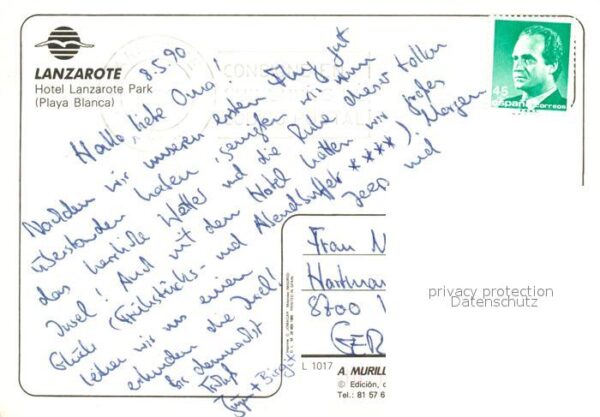 LANZAROTE
Hotel Lanzarote Park
(Playa Blanca)
8.5.90
Hallo, liebe Oma!
Nachdem wir unseren ersten Flug gut
überstanden haben, genießen wir nun
das herrliche Wetter und die Ruhe dieser tollen
Insel! Auch mit dem Hotel hatten wir großes
Glück (Frühstücks- und Abendbuffet ****). Morgen
leihen wir uns einen Jeep und
erkunden die Insel!
Bis demnächst
+ Birgit
45
españa correos
Frau
8700
GER
privacy protection
Datenschutz
L 1017
A. MURILL
© Edición,
Tel.: 81 57 6